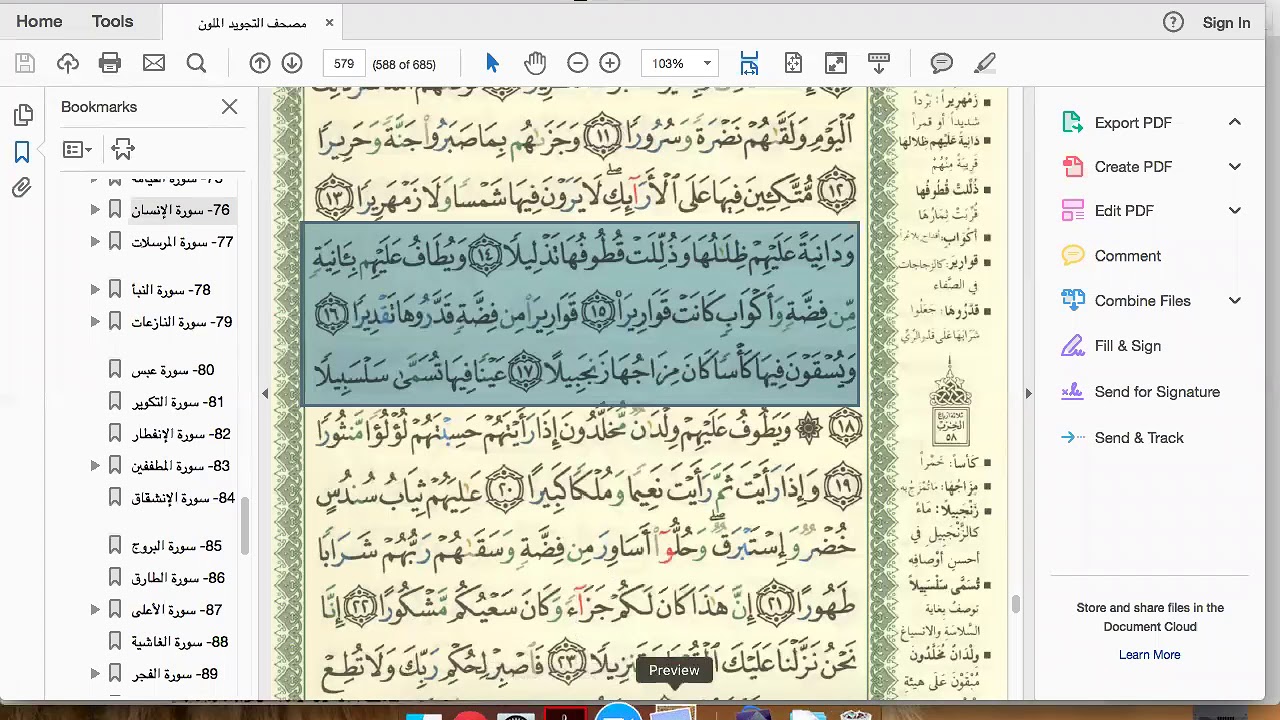 Home
Tools
مصحف التجويد الملون
Sign In
579
(588 of 685)
103%
Bookmarks
76- سورة الإنسان
77- سورة المرسلات
78- سورة النبأ
79- سورة النازعات
80- سورة عبس
81- سورة التكوير
82- سورة الإنفطار
83- سورة المطففين
84- سورة الإنشقاق
85- سورة البروج
86- سورة الطارق
87- سورة الأعلى
88- سورة الغاشية
89- سورة الفجر
ٱلْيَوْمِ وَلَقَّىٰهُمْ نَضْرَةً وَسُرُورًا ١١ وَجَزَىٰهُم بِمَا صَبَرُوا۟ جَنَّةً وَحَرِيرًا
١٢ مُّتَّكِـِٔينَ فِيهَا عَلَى ٱلْأَرَآئِكِ ۖ لَا يَرَوْنَ فِيهَا شَمْسًا وَلَا زَمْهَرِيرًا ١٣
وَدَانِيَةً عَلَيْهِمْ ظِلَـٰلُهَا وَذُلِّلَتْ قُطُوفُهَا تَذْلِيلًا ١٤ وَيُطَافُ عَلَيْهِم بِـَٔانِيَةٍ
مِّن فِضَّةٍ وَأَكْوَابٍ كَانَتْ قَوَارِيرَا۠ ١٥ قَوَارِيرَا۟ مِن فِضَّةٍ قَدَّرُوهَا تَقْدِيرًا ١٦
وَيُسْقَوْنَ فِيهَا كَأْسًا كَانَ مِزَاجُهَا زَنجَبِيلًا ١٧ عَيْنًا فِيهَا تُسَمَّىٰ سَلْسَبِيلًا
١٨ ۞ وَيَطُوفُ عَلَيْهِمْ وِلْدَٰنٌ مُّخَلَّدُونَ إِذَا رَأَيْتَهُمْ حَسِبْتَهُمْ لُؤْلُؤًا مَّنثُورًا
١٩ وَإِذَا رَأَيْتَ ثَمَّ رَأَيْتَ نَعِيمًا وَمُلْكًا كَبِيرًا ٢٠ عَـٰلِيَهُمْ ثِيَابُ سُندُسٍ
خُضْرٌ وَإِسْتَبْرَقٌ ۖ وَحُلُّوٓا۟ أَسَاوِرَ مِن فِضَّةٍ وَسَقَىٰهُمْ رَبُّهُمْ شَرَابًا
طَهُورًا ٢١ إِنَّ هَـٰذَا كَانَ لَكُمْ جَزَآءً وَكَانَ سَعْيُكُم مَّشْكُورًا ٢٢ إِنَّا
نَحْنُ نَزَّلْنَا عَلَيْكَ تَنزِيلًا ٢٣ فَٱصْبِرْ لِحُكْمِ رَبِّكَ وَلَا تُطِعْ
زَمْهَرِيراً: بَرْداً
شديداً أو قمراً
دَانِيَةً عَلَيْهِمْ ظِلَالُهَا
قَرِيبَةً مِنْهُمْ
ذُلِّلَتْ قُطُوفُهَا
قُرِّبَتْ ثِمَارُهَا
أَكْوَابٍ:
قَوَارِيرَ: كالزجاجات
في الصَّفاء
قَدَّرُوهَا: جَعَلُوا
شَرَابَهَا عَلى قَدْرِ الرِّيّ
ثلاثة أرباع
الحزب
٥٨
كَأْساً: خَمْراً
مِزَاجُهَا: ما تُمْزَجُ به
زَنْجَبِيلاً: مَاءً
كالزَّنْجَبِيل في
أحسنِ أوصافِه
تُسَمَّى سَلْسَبِيلاً
تُوصَفُ بغاية
السَّلاسَةِ والانسياغ
وِلْدَانٌ مُخَلَّدُونَ
مُبْقَوْنَ عَلَى هَيْئَةِ
Export PDF
Create PDF
Edit PDF
Comment
Combine Files
Fill & Sign
Send for Signature
Send & Track
Store and share files in the
Document Cloud
Learn More
Preview